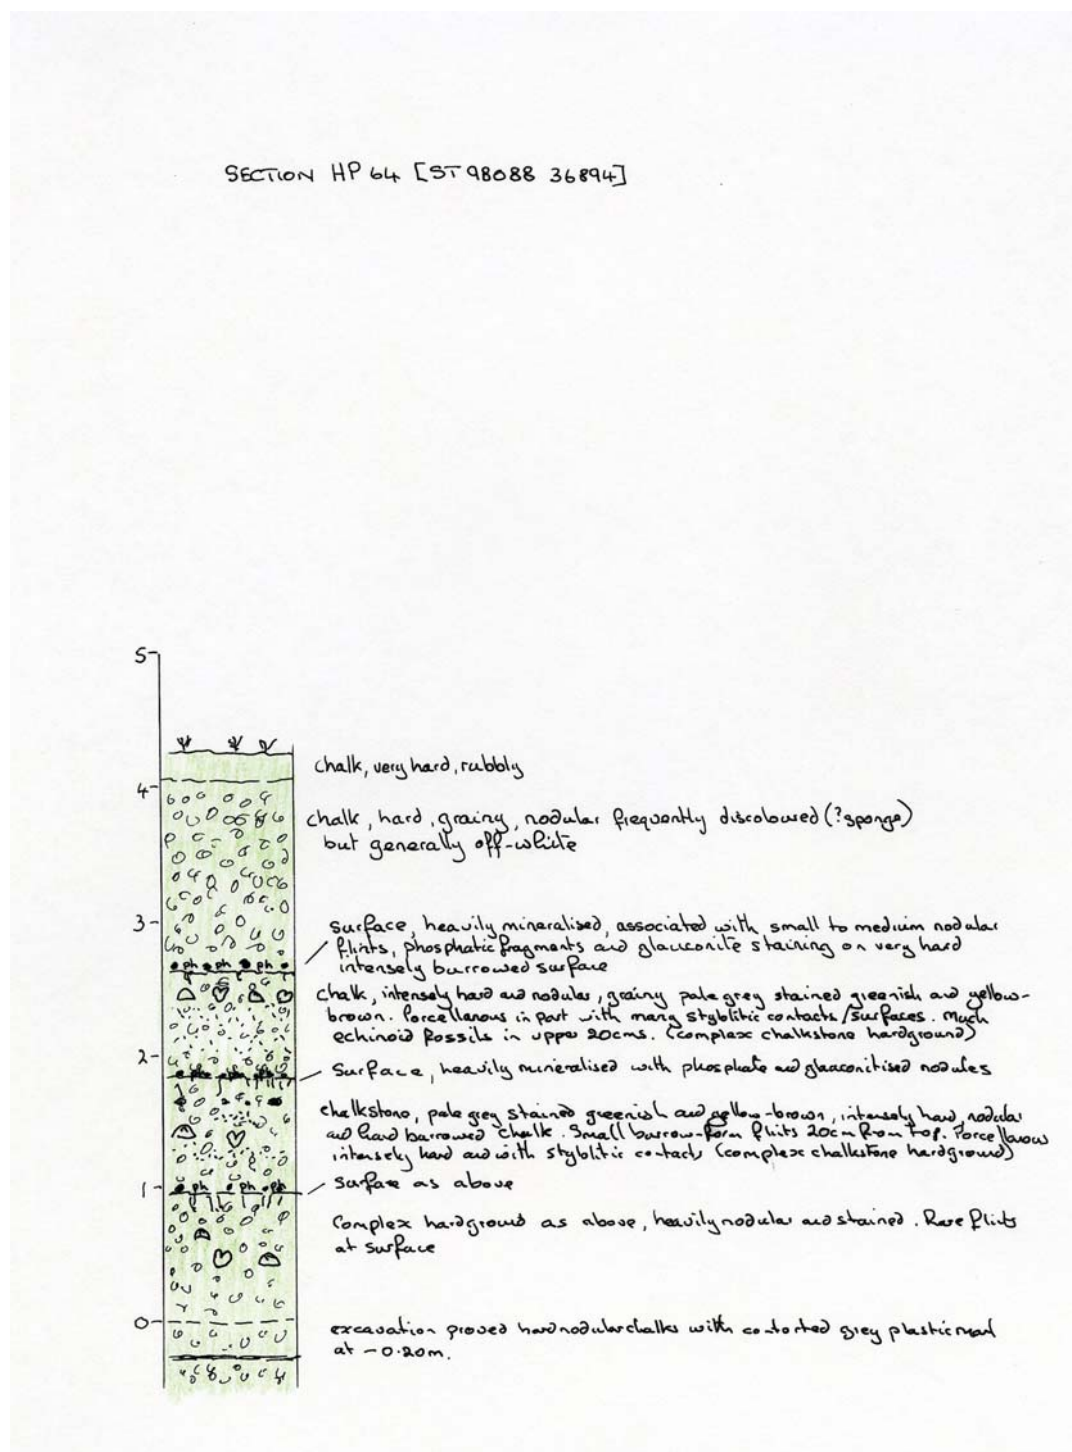 SECTION HP 64 [ST 98088 36894]
5
chalk, very hard, rubbly
4
chalk, hard, grainy, nodular frequently discoloured (?sponge)
but generally off-white
3
surface, heavily mineralised, associated with small to medium nodular
flints, phosphatic fragments and glauconite staining on very hard
intensely burrowed surface
ph ph ph
chalk, intensely hard and nodular, grainy pale grey stained greenish and yellow-
brown. Porcellanous in part with many styblitic contacts/surfaces. Much
echinoid fossils in upper 20cms. (complex chalkstone hardground)
2
Surface, heavily mineralised with phosphate and glauconitised nodules
chalkstone, pale grey stained greenish and yellow-brown, intensely hard, nodular
and hard burrowed chalk. Small burrow-form flints 20cm from top. Porcellanous
intensely hard and with styblitic contacts (complex chalkstone hardground)
ph ph ph
1
Surface as above
Complex hardground as above, heavily nodular and stained. Rare flints
at surface
0
excavation proved hard nodular chalks with contorted grey plastic marl
at -0.20m.